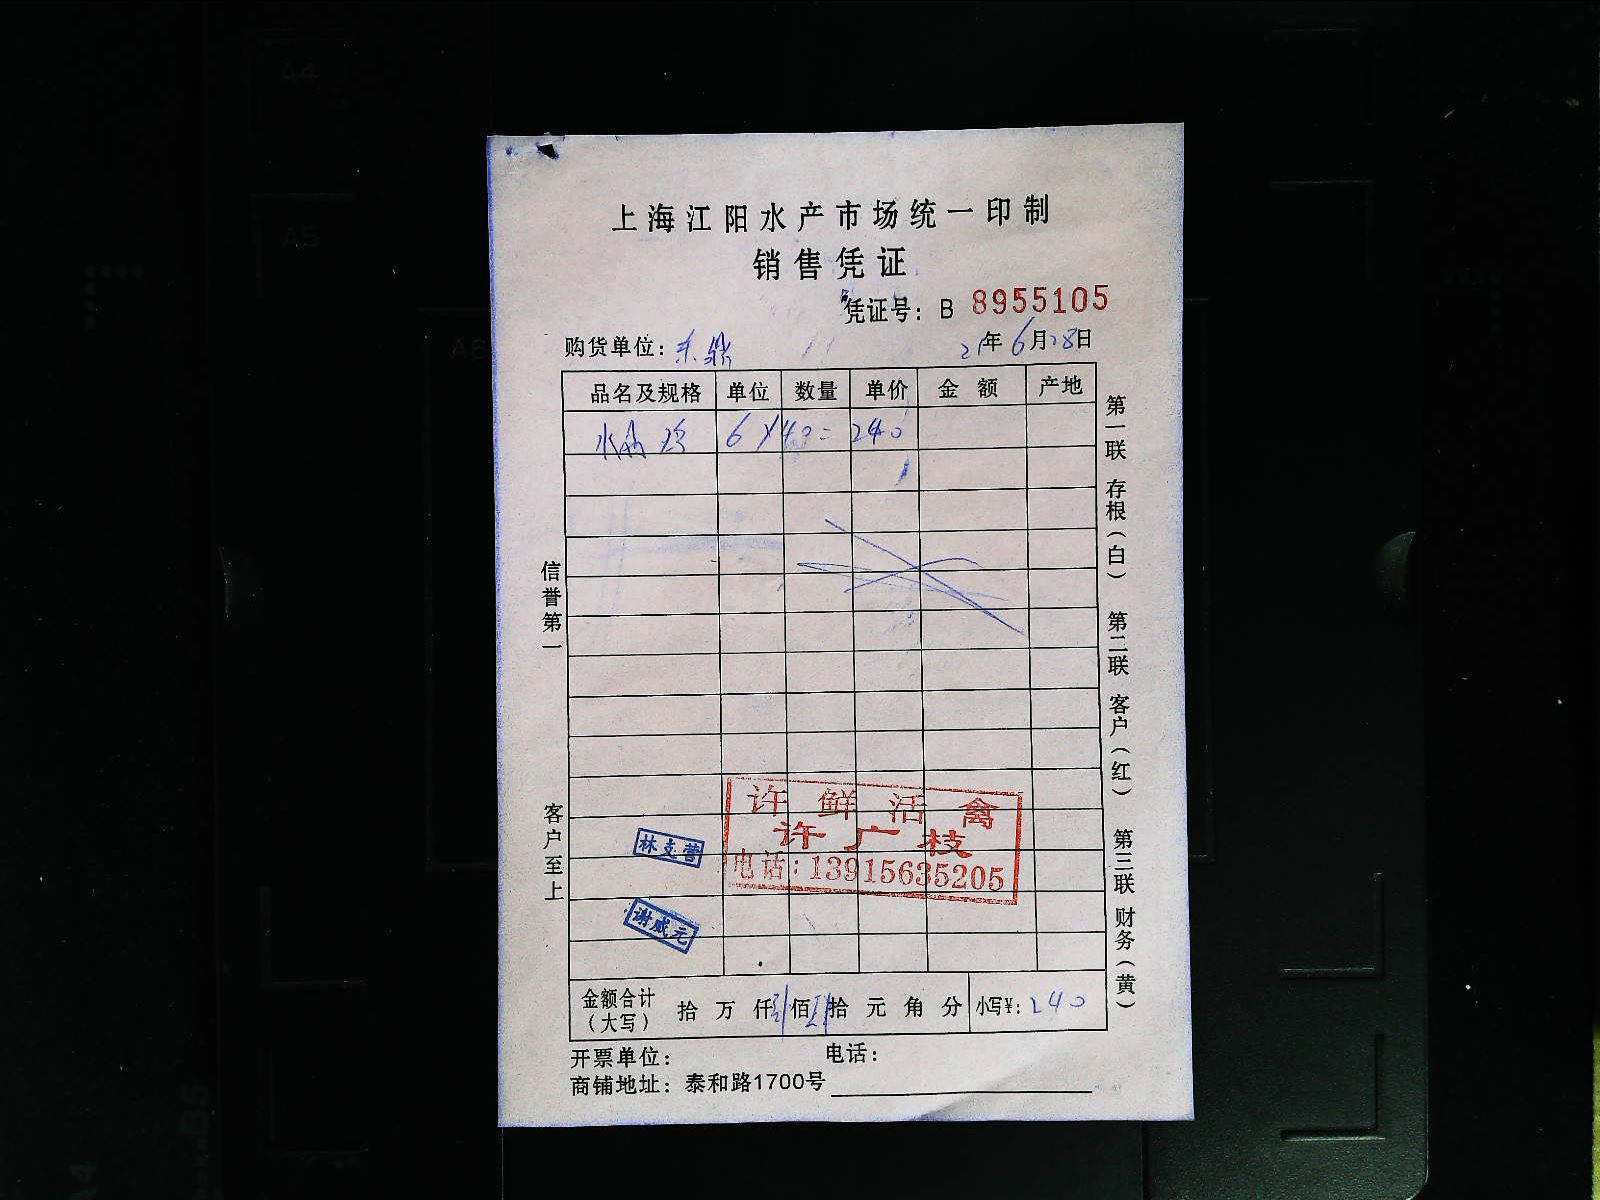 上海江阳水产市场统一印制
销售凭证
凭证号：B 8955105
购货单位：东
21年6月28日
品名及规格 单位 数量 单价 金额 产地
水 6×40=240
第一联 存根（白） 第二联 客户（红） 第三联 财务（黄）
信誉第一
客户至上
许鲜活禽
许广枝
电话：13915635205
林支营
谢威元
金额合计（大写） 拾万仟佰拾元角分 小写¥：240
开票单位： 电话：
商铺地址：泰和路1700号
A4
A5
A6